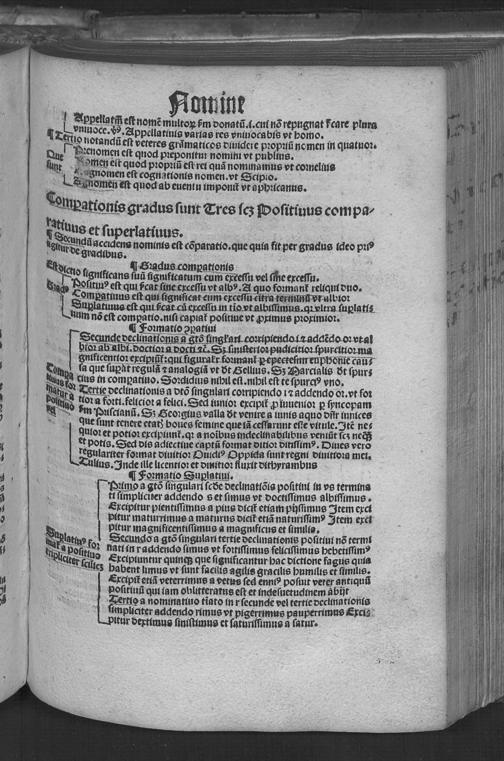 Nomine
Appellatiuũ est nomẽ multorꝝ ẜm donatũ .i. cui nõ repugnat ſcare plura
vniuoce. vꝰ. Appellatinis varias res vniuocabis vt homo.
¶ Tertio notandũ est veteres grãmaticos diuidere propriũ nomen in quatuor.
Prenomen est quod preponitur nomini vt publius.
Nomen eſt quod propriũ est rei quũ nominamus vt cornelius
Que sunt
Cognomen est cognationis nomen. vt Scipio.
Agnomen est quod ab euentu imponit̃ vt aphricanus.
Comꝑationis gradus sunt Tres scꝫ Positiuus compa-
ratiuus et superlatiuus.
¶ Secundũ accidens nominis est cõparatio. que quia fit per gradus ideo priꝰ
igitur de gradibus.
¶ Gradus comꝑationis
Est dictio significans suũ significatum cum excessu vel sine excessu.
Gradꝰ
Positiuꝰ est qui ſcat sine excessu vt albꝰ. A quo formant̃ reliqui duo.
Comꝑatiuus est qui significat cum excessu citra terminũ vt albior
Suꝑlatiuus est qui ſcat cũ excessu in tto vt albissimus. qr vltra suꝑlati
uum nõ est comꝑatio. nisi capiat̃ positiue vt proximus proximior.
¶ Formatio ꝯꝑatiui
Secunde declinationis a gtõ singlari. corripiendo i ⁊ addẽdo or. vt al
bior ab albi. doctior a docti ⁊c̃. Sꝫ sinisterior pudicitior spurcitior ma
gnificentior excipiũt̃ qui figurate formant̃
Comꝑa
tiuus for
matur a
positiuo
vel
cius in comꝑatiuo. Sordidius nihil est. nihil est te spurcꝰ vno.
Tertie declinationis a dtõ singulari corripiendo i ⁊ addendo or. vt for
tior a forti. felicior a felici. Sed iunior excipit̃ ꝓ iuuenior ꝑ syncopam
ẜm Priscianũ. Sꝫ Georgius valla dt̃ venire a iunis aquo dr̃ iunices
que sunt tenere etatꝭ boues femine que iã cessarunt esse vitule. Itẽ ne
quior et potior excipiunt̃. qr a noĩbus indeclinabilibus veniũt scꝫ neqꝫ
et potis. Sed dis adiectiue captũ format ditior ditissimꝰ. Diues vero
regulariter format diuitior Ouidiꝰ Oppida sunt regni diuitiora mei.
Tulius. Inde ille licentior et diuitior fluxit dithyrambus
¶ Formatio Suꝑlatiui.
Primo a gtõ singulari scde declinatiõis positiui in vs termina
ti simpliciter addendo s et simus vt doctissimus albissimus.
Excipitur pientissimus a pius dicit̃ etiam pijssimus Item exci
pitur maturrimus a maturus dicit̃ etiã naturissimꝰ Item exci
pitur magnificentissimus a magnificus et similia.
Suꝑlatiuꝰ for
mat̃ a positiuo
tripliciter scilicꝫ
Secundo a gtõ singulari tertie declinationis positiui nõ termi
nati in r addendo simus vt fortissimus felicissimus hebetissimꝰ
Excipiuntur quinqꝫ que significantur hac dictione fagus quia
habent limus vt sunt facilis agilis gracilis humilis et similis.
Excipit̃ etiã veterrimus a vetus sed enniꝰ posuit veter antiquũ
positiuũ qui iam oblitteratus est et indesuetudinem abijt
Tertio a nominatiuo tiato in r secunde vel tertie declinationis
simpliciter addendo rimus vt pigerrimus pauperrimus Exci-
pitur dextimus sinistimus et saturissimus a satur.